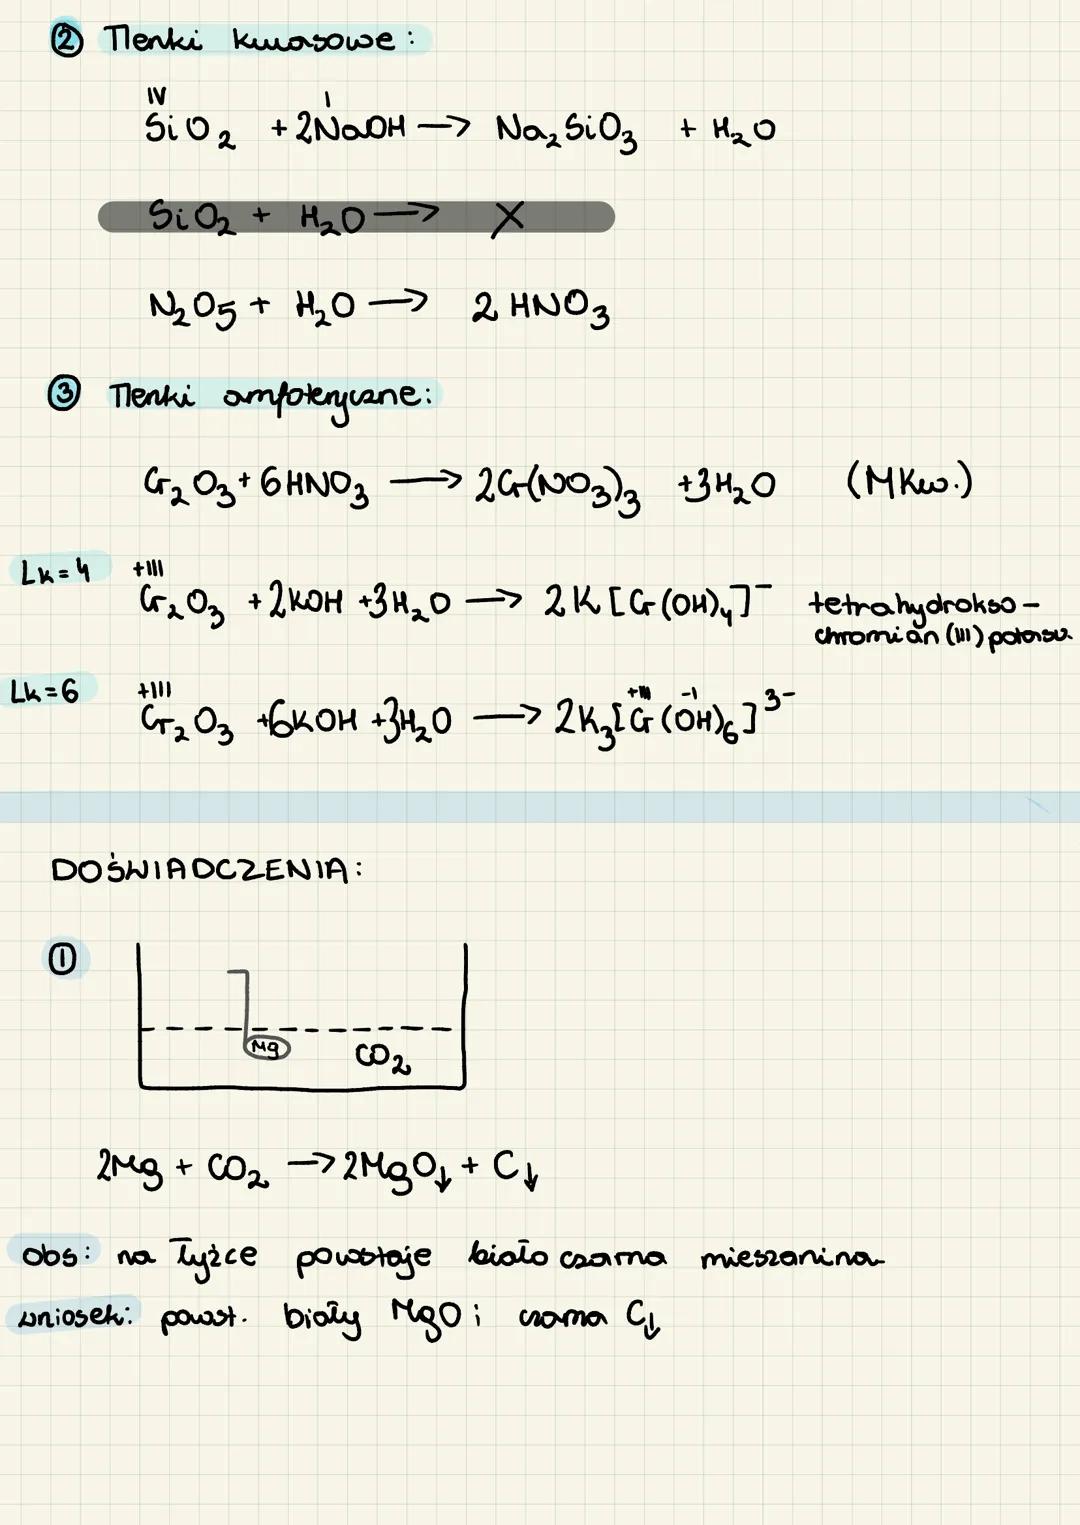 ② Tlenki kwasowe:
IV I
SiO₂ + 2NaOH → Na₂SiO₃ + H₂O
SiO₂ + H₂O → X
N₂O₅ + H₂O → 2 HNO₃
③ Tlenki amfoteryczne:
Cr₂O₃ + 6HNO₃ → 2Cr(NO₃)₃ + 3H₂O (MKw.)
Lk=4 +III
Cr₂O₃ + 2KOH + 3H₂O → 2K[Cr(OH)₄]⁻ tetrahydrokso-
chromian (III) potasu.
Lk=6 +III +III -I
Cr₂O₃ + 6KOH + 3H₂O → 2K₃[Cr(OH)₆]³⁻
DOŚWIADCZENIA:
①
Mg CO₂
2Mg + CO₂ → 2MgO↓ + C↓
obs: na łyżce powstaje biało czarna mieszanina
wniosek: powst. biały MgO i czarna C↓